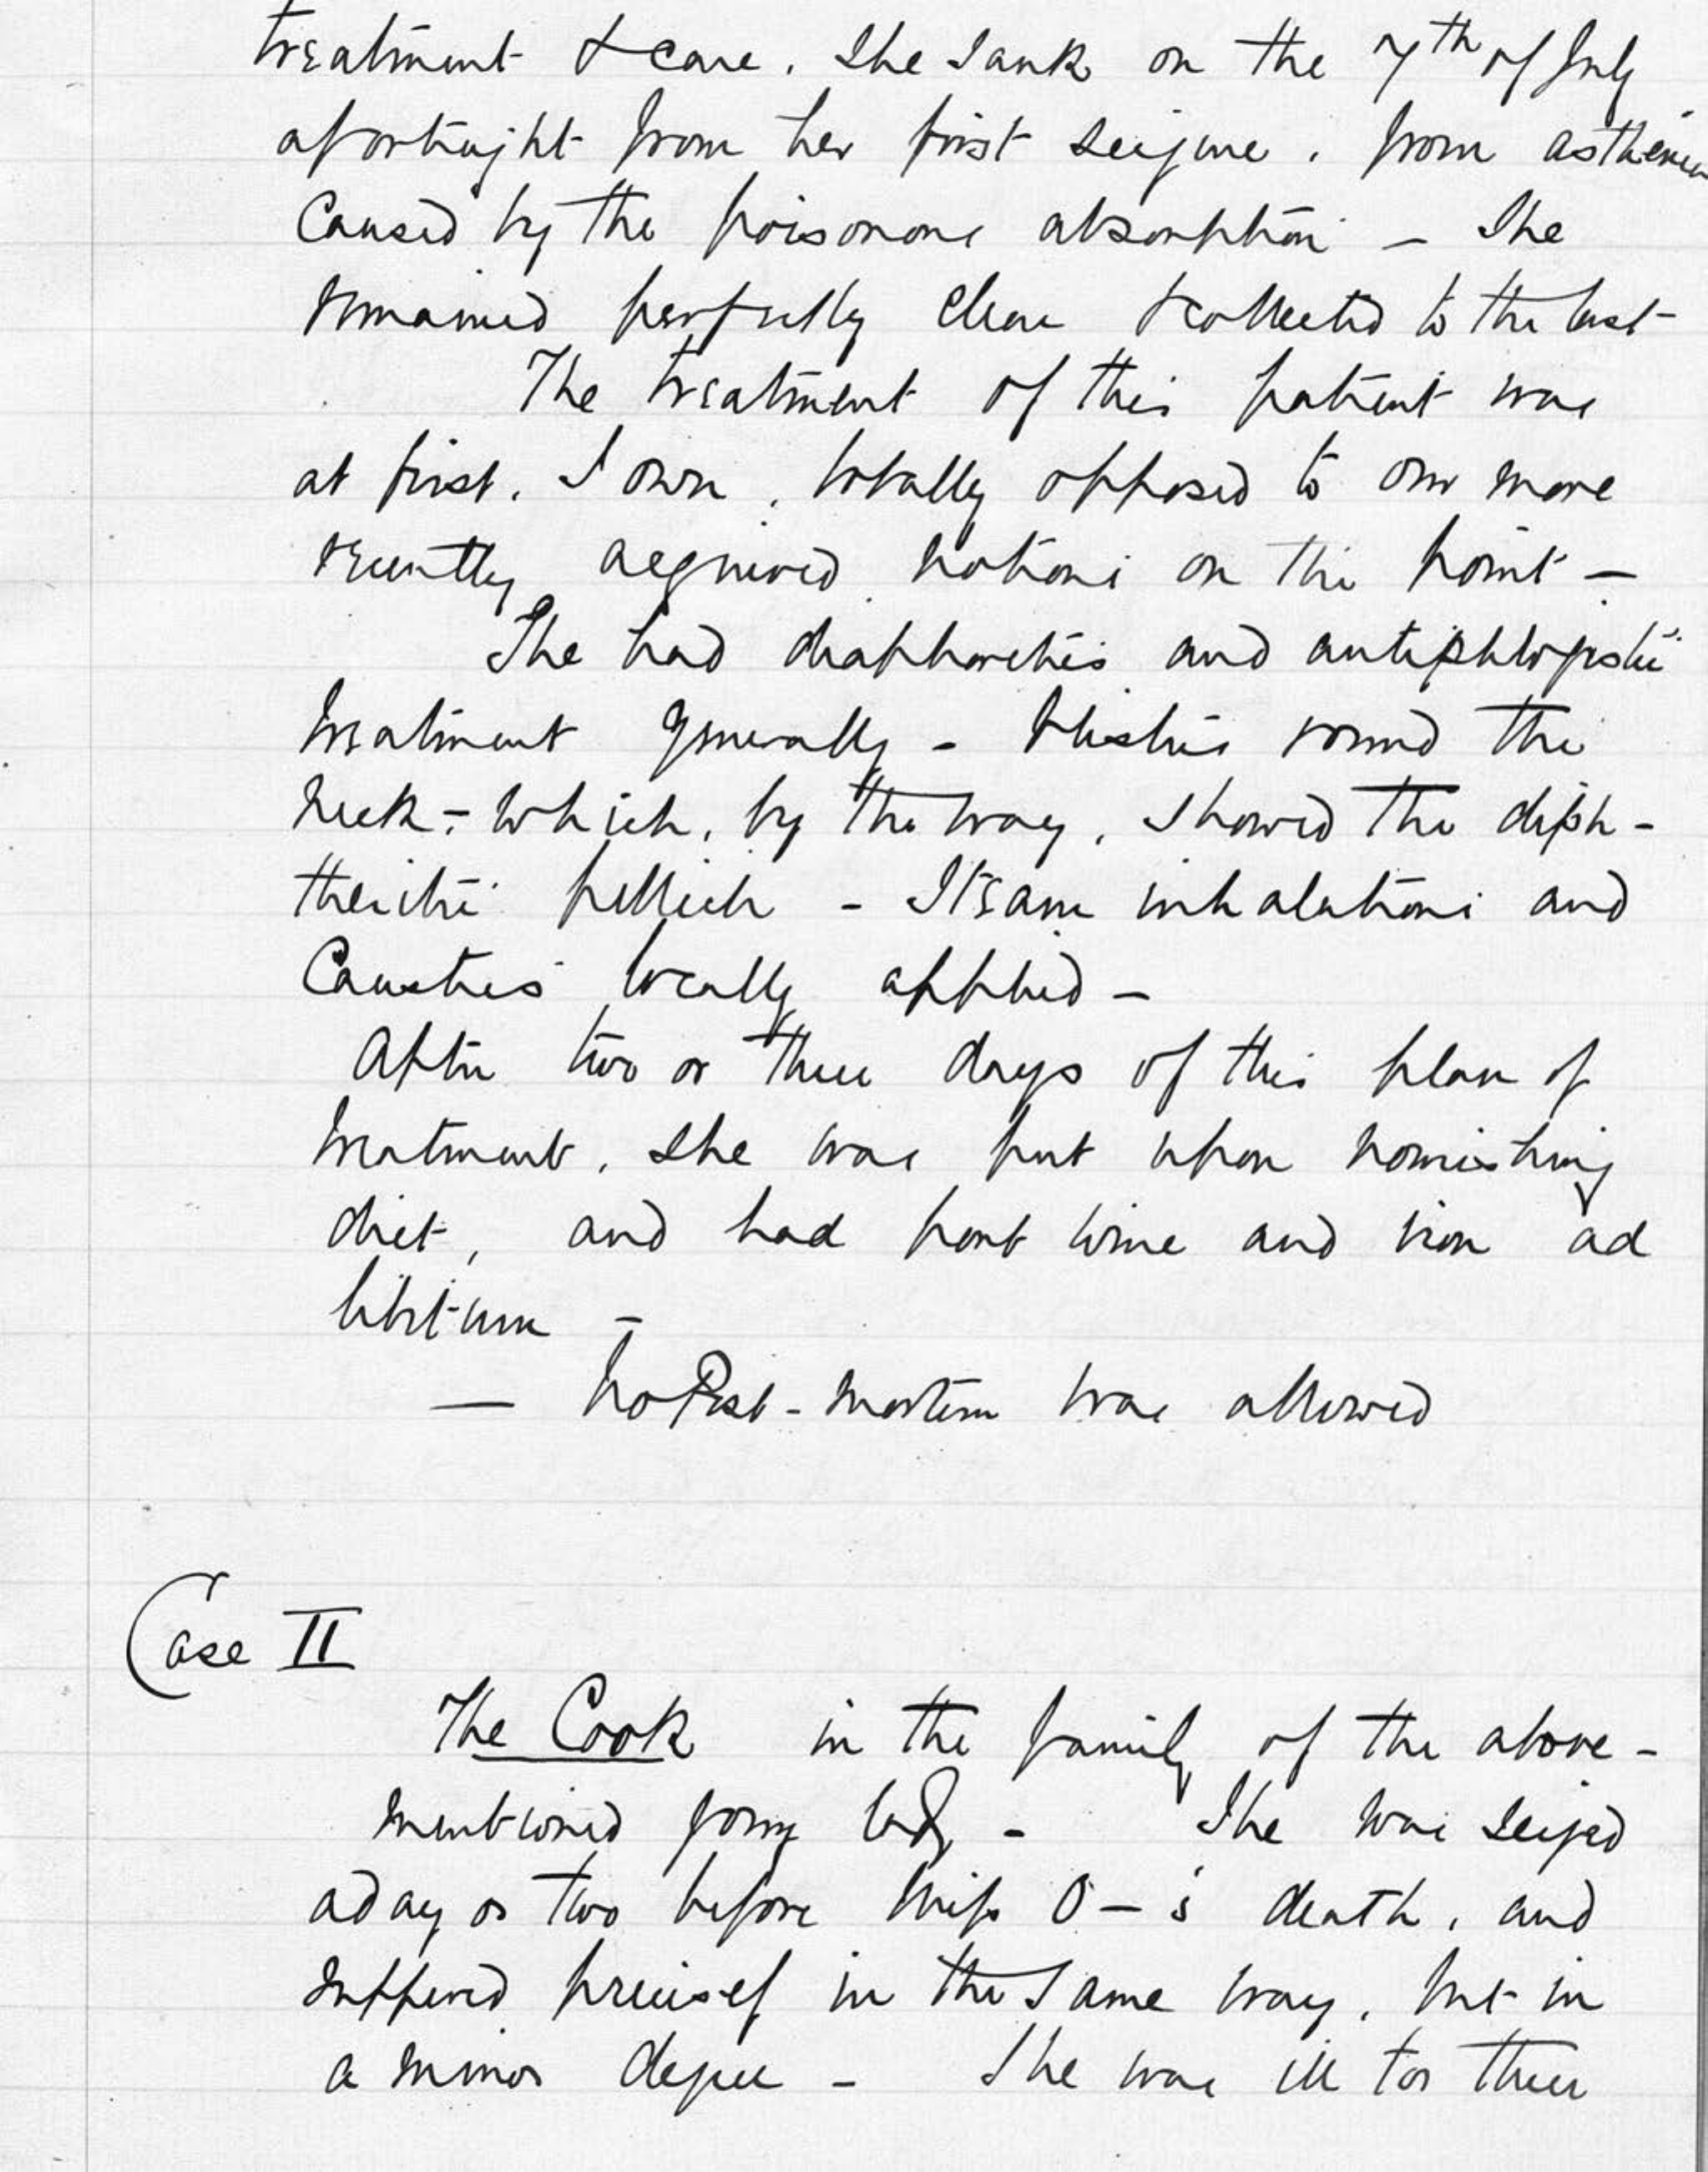 treatment & care. She sank on the 7th of July
a fortnight from her first seizure, from asthenia
caused by the poisonous absorption — She
remained perfectly clear & collected to the last
The treatment of this patient was
at first, I own, totally opposed to our more
recently acquired notions on the point —
She had diaphoretics and antiphlogistic
treatment generally - blisters round the
neck - which, by the way, showed the diph-
theritic pellicle - Steam inhalations and
Caustics locally applied —
After two or three days of this plan of
treatment, she was put upon nourishing
diet, and had port wine and iron ad
libitum —
— No Post-Mortem was allowed
Case II
The Cook in the family of the above-
mentioned young lady - She was seized
a day or two before Miss O—'s death, and
suffered precisely in the same way, but in
a minor degree - She was ill for three